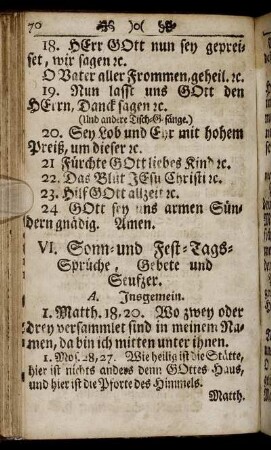 70 )o(
18. HErr GOtt nun sey geprei-
set, wir sagen ꝛc.
O Vater aller Frommen, geheil. ꝛc.
19. Nun lasst uns GOtt den
HErrn, Danck sagen ꝛc.
(Und andere Tisch-G-sänge.)
20. Sey Lob und Ehr mit hohem
Preiß, um dieser ꝛc.
21 Fürchte GOtt liebes Kind ꝛc.
22. Das Blut JEsu Christi ꝛc.
23. Hilf GOtt allzeit ꝛc.
24 GOtt sey uns armen Sün-
dern gnädig. Amen.
VI. Sonn- und Fest-Tags-
Sprüche, Gebete und
Seufzer.
A. Insgemein.
1. Matth. 18, 20. Wo zwey oder
drey versammlet sind in meinem Na-
men, da bin ich mitten unter ihnen.
1. Mos. 28, 27. Wie heilig ist die Stätte,
hier ist nichts anders denn GOttes Haus,
und hier ist die Pforte des Himmels.
Matth.